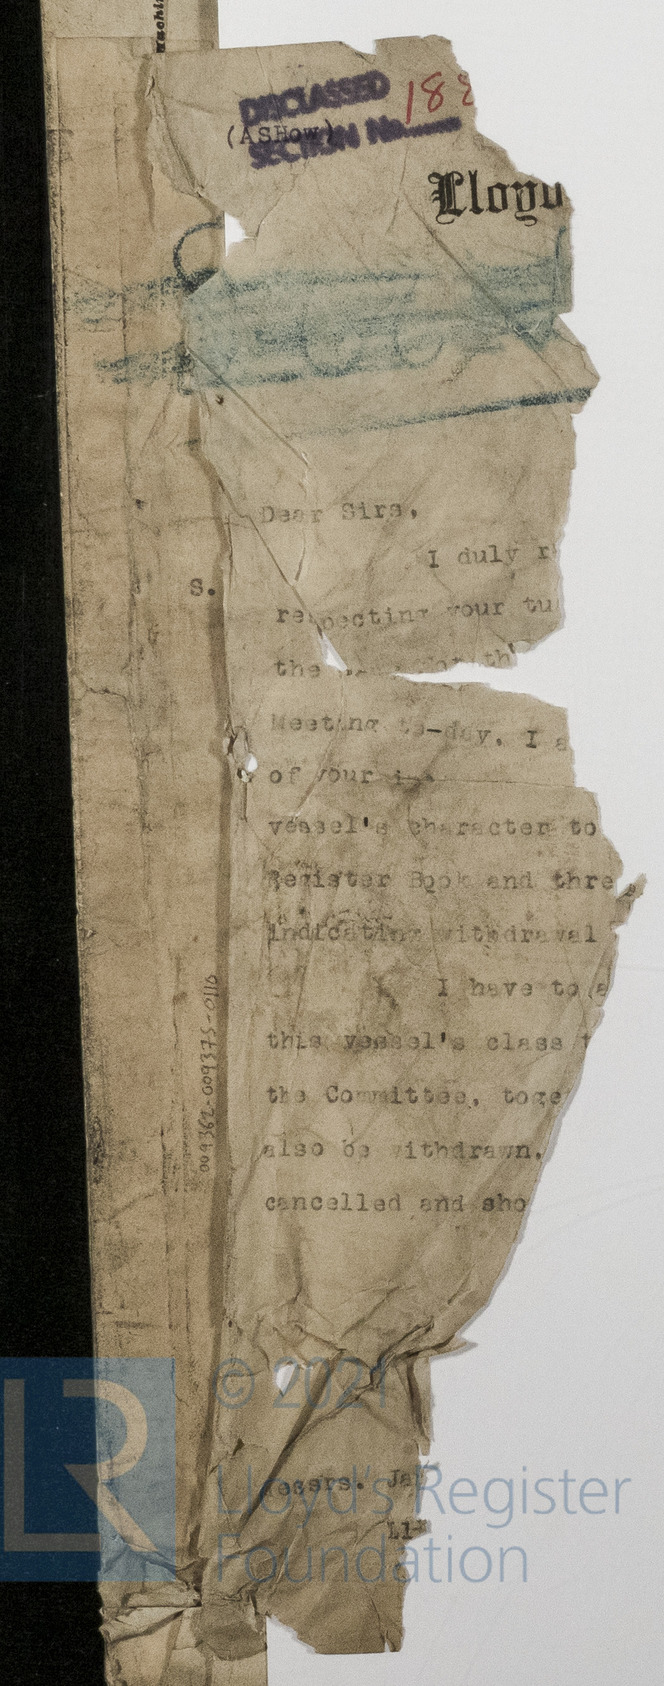 DISCLASSED
188
(ASHow)
SECTION No.
Lloyd
Dear Sirs,
I duly r
S.
respecting your tu
the th
Meeting to-day. I a
of your
vessel's character to
Register Book and three
indicating withdrawal
I have to a
this vessel's class t
the Committee, toge
also be withdrawn.
cancelled and sho
009362-009375-0110
© 2021
essrs. Ja
Lloyd's Register
Foundation
LR